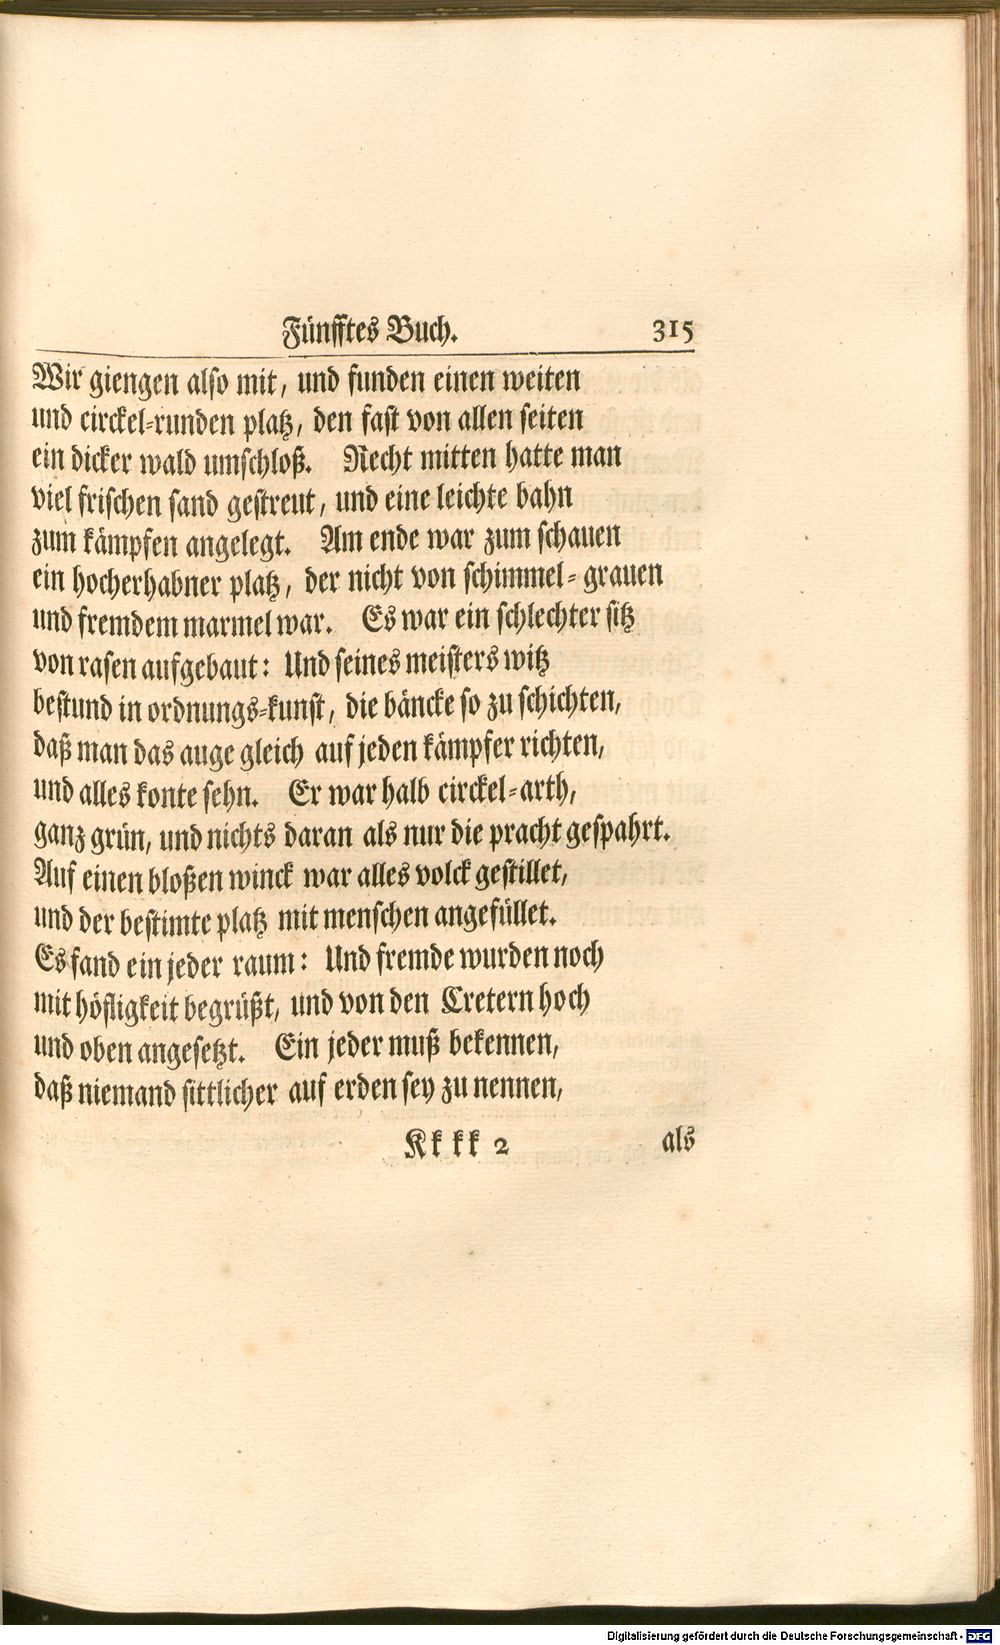 Fünfftes Buch. 315
Wir giengen also mit, und funden einen weiten
und circkel-runden platz, den fast von allen seiten
ein dicker wald umschloß. Recht mitten hatte man
viel frischen sand gestreut, und eine leichte bahn
zum kämpfen angelegt. Am ende war zum schauen
ein hocherhabner platz, der nicht von schimmel-grauen
und fremdem marmel war. Es war ein schlechter sitz
von rasen aufgebaut: Und seines meisters witz
bestund in ordnungs-kunst, die bäncke so zu schichten,
daß man das auge gleich auf jeden kämpfer richten,
und alles konte sehn. Er war halb circkel-arth,
ganz grün, und nichts daran als nur die pracht gespahrt.
Auf einen bloßen winck war alles volck gestillet,
und der bestimte platz mit menschen angefüllet.
Es fand ein jeder raum: Und fremde wurden noch
mit höfligkeit begrüßt, und von den Cretern hoch
und oben angesetzt. Ein jeder muß bekennen,
daß niemand sittlicher auf erden sey zu nennen,
Kk kk 2 als
Digitalisierung gefördert durch die Deutsche Forschungsgemeinschaft - DFG